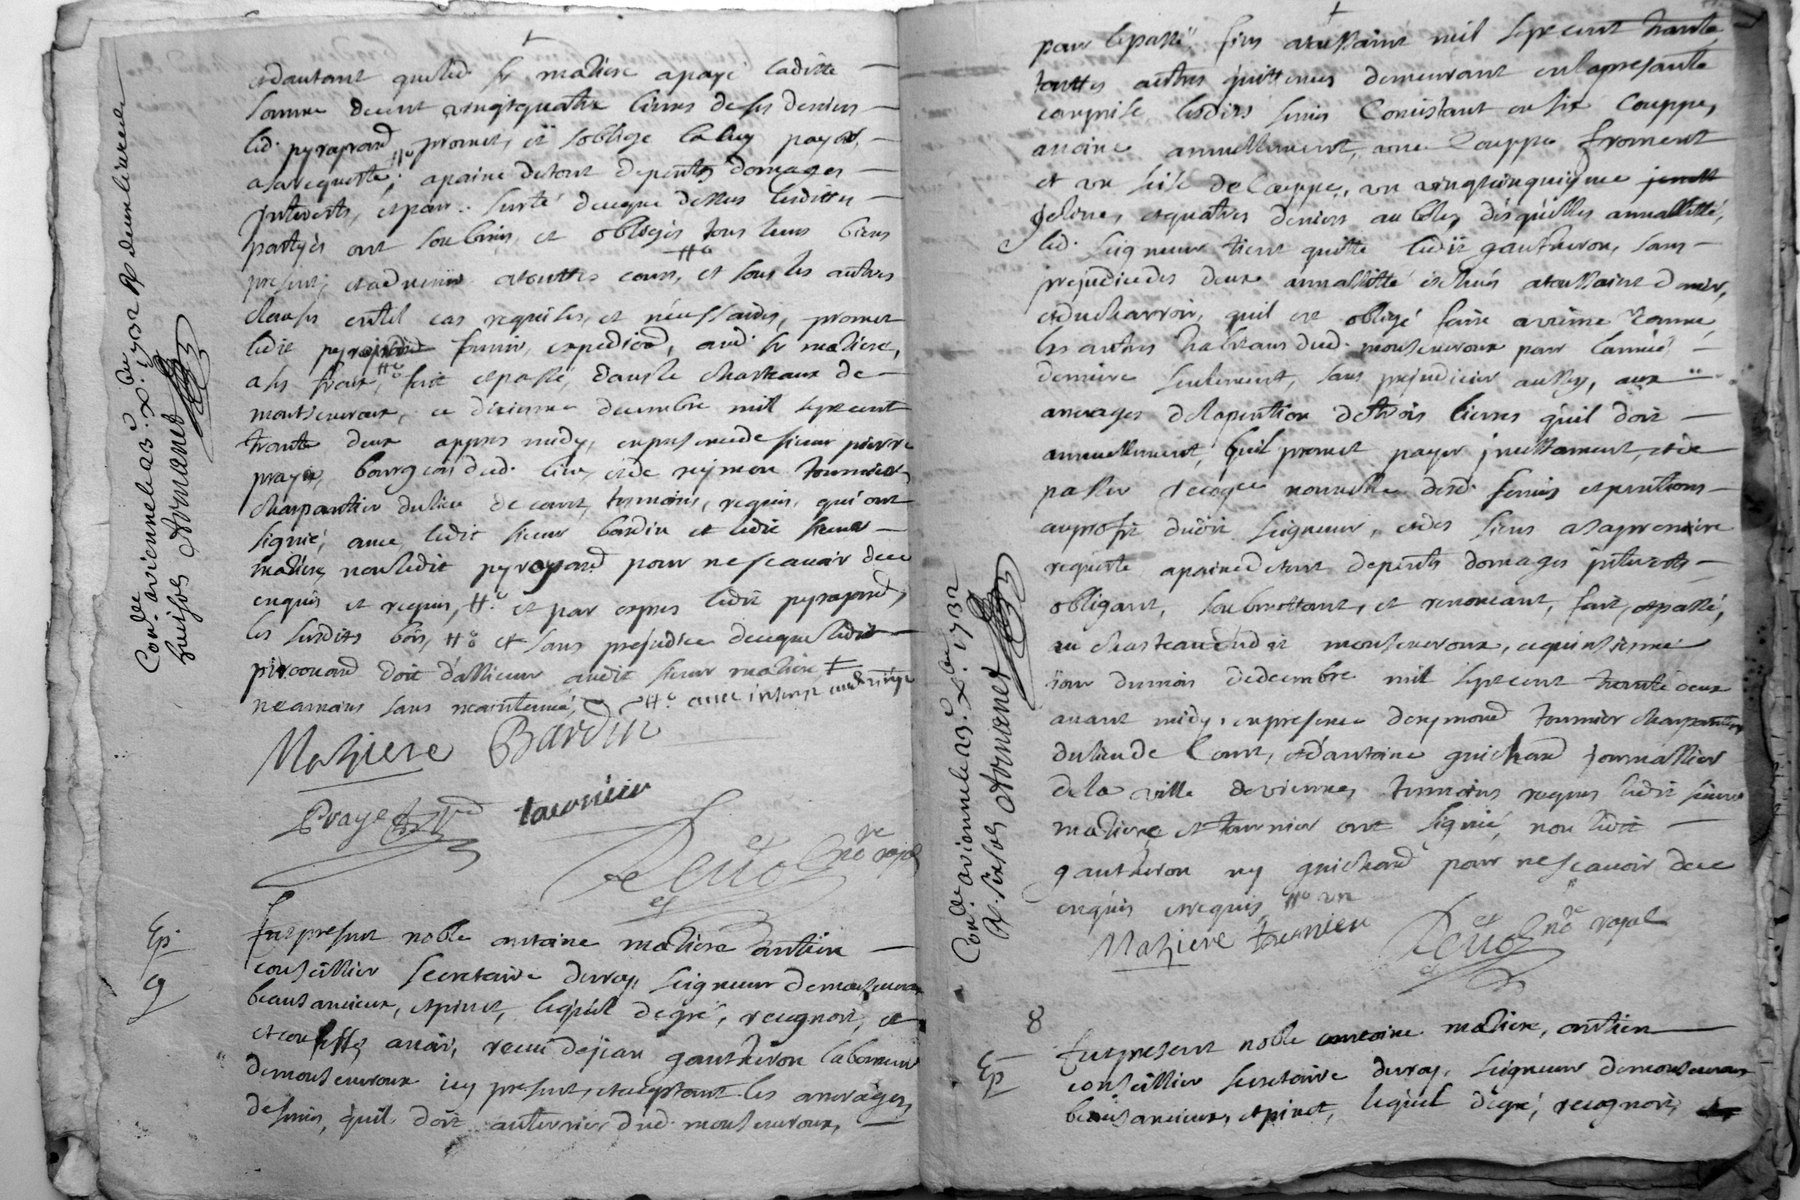 et dautant que led. sr maziere a payé laditte
somme de cent vingtquatre livres de ses deniers
led. pyraprand promet, et soblige la luy payer,
a sa requette, a paine de tout depents domages
interests, et pour surté de ce que dessus lesdittes
partyes ont soubmis et obligés tous leurs biens
presents et advenir a touttes cours, et sous les autres
clauses en tel cas requises, et néssessaires, promet
ledit fournir expedition, aud. sr maziere,
a ses fraix, fait et passé, dans le chasteaux de
montseveroux, ce dixieme decembre mil sept cent
trante deux appres midy, en presence de sieur pierre
praye, bourgeois dud. lieu, et de reymon tournier
charpantier du lieu de cour, temoins, requis, qui ont
signié, avec ledit sieur bardin et ledit sieur
maziere, non ledit pyraprand pour ne scavoir de ce
enquis et requis, et par expres ledit pyraprand,
les susdits bois, et sans prejudice de ce que ledit
doit dallieur audit sieur maziere
neamoins sans
Maziere Bardin
Praye tournier
Revol nore royal
Ep.
9
Fut present noble antoine maziere antien
conseillier secretaire du roy, seigneur de monseveroux
beausancieux, et pinet, lequel de gré, recognoit, et
et confesse avoir, receu de jean gautheron laboureur
de monseveroux icy present, et acceptant les arrerages
de servis, quil doit au terrier dud. monseveroux,
Con.de a vienne le 23.e x.bre 1732 R deux livres
huit sols Armenet
par le passé, fins a toussaint mil sept cent trante
touttes autres quittences demeurant en la presante
comprise lesdits servis consistant en six couppes,
avoine annuellement, une couppe froment
et un seise de couppe, un vingtcinquieme
geline, et quatres deniers au bles, desquelles annuallitté,
led. seigneur tient quitte ledit gautheron, sans
prejudice des deux annallitté echues a toussaint dernier,
et du charroir, quil est obligé faire a vienne comme
les autres habitans dud. monseveroux pour lannée
derniere seulement, sans prejudicier aussy, aux
arrerages de la pention de trois livres quil doit
annuellement, quil promet payer incessament, et de
passer recogce nouvelle desd. servis et pentions
au profit dudit seigneur, et des siens a sa premiere
requette a paine de tout depents domages interests
obligant, soubmettant, et renonceant, fait, et passé,
au chasteau dudit monseveroux, ce quinsieme
jour du mois de decembre mil sept cent trante deux
avant midy, en presence de reymond tournier charpantier
du lieu de Cour, et dantoine guichard journallier
de la ville de vienne, temoins requis ledit sieur
maziere et tournier ont signié, non ledit
gautheron ny guichard pour ne scavoir de ce
enquis et requis
Maziere tournier Revol nore royal
Con.de a vienne le 23.e x.bre 1732
R. six sols Armenet
8
Ep
Fut present noble antoine maziere, antien
conseillier secretaire du roy, seigneur de monseveroux
beausancieux, et pinet, lequel de gré, recognoit,